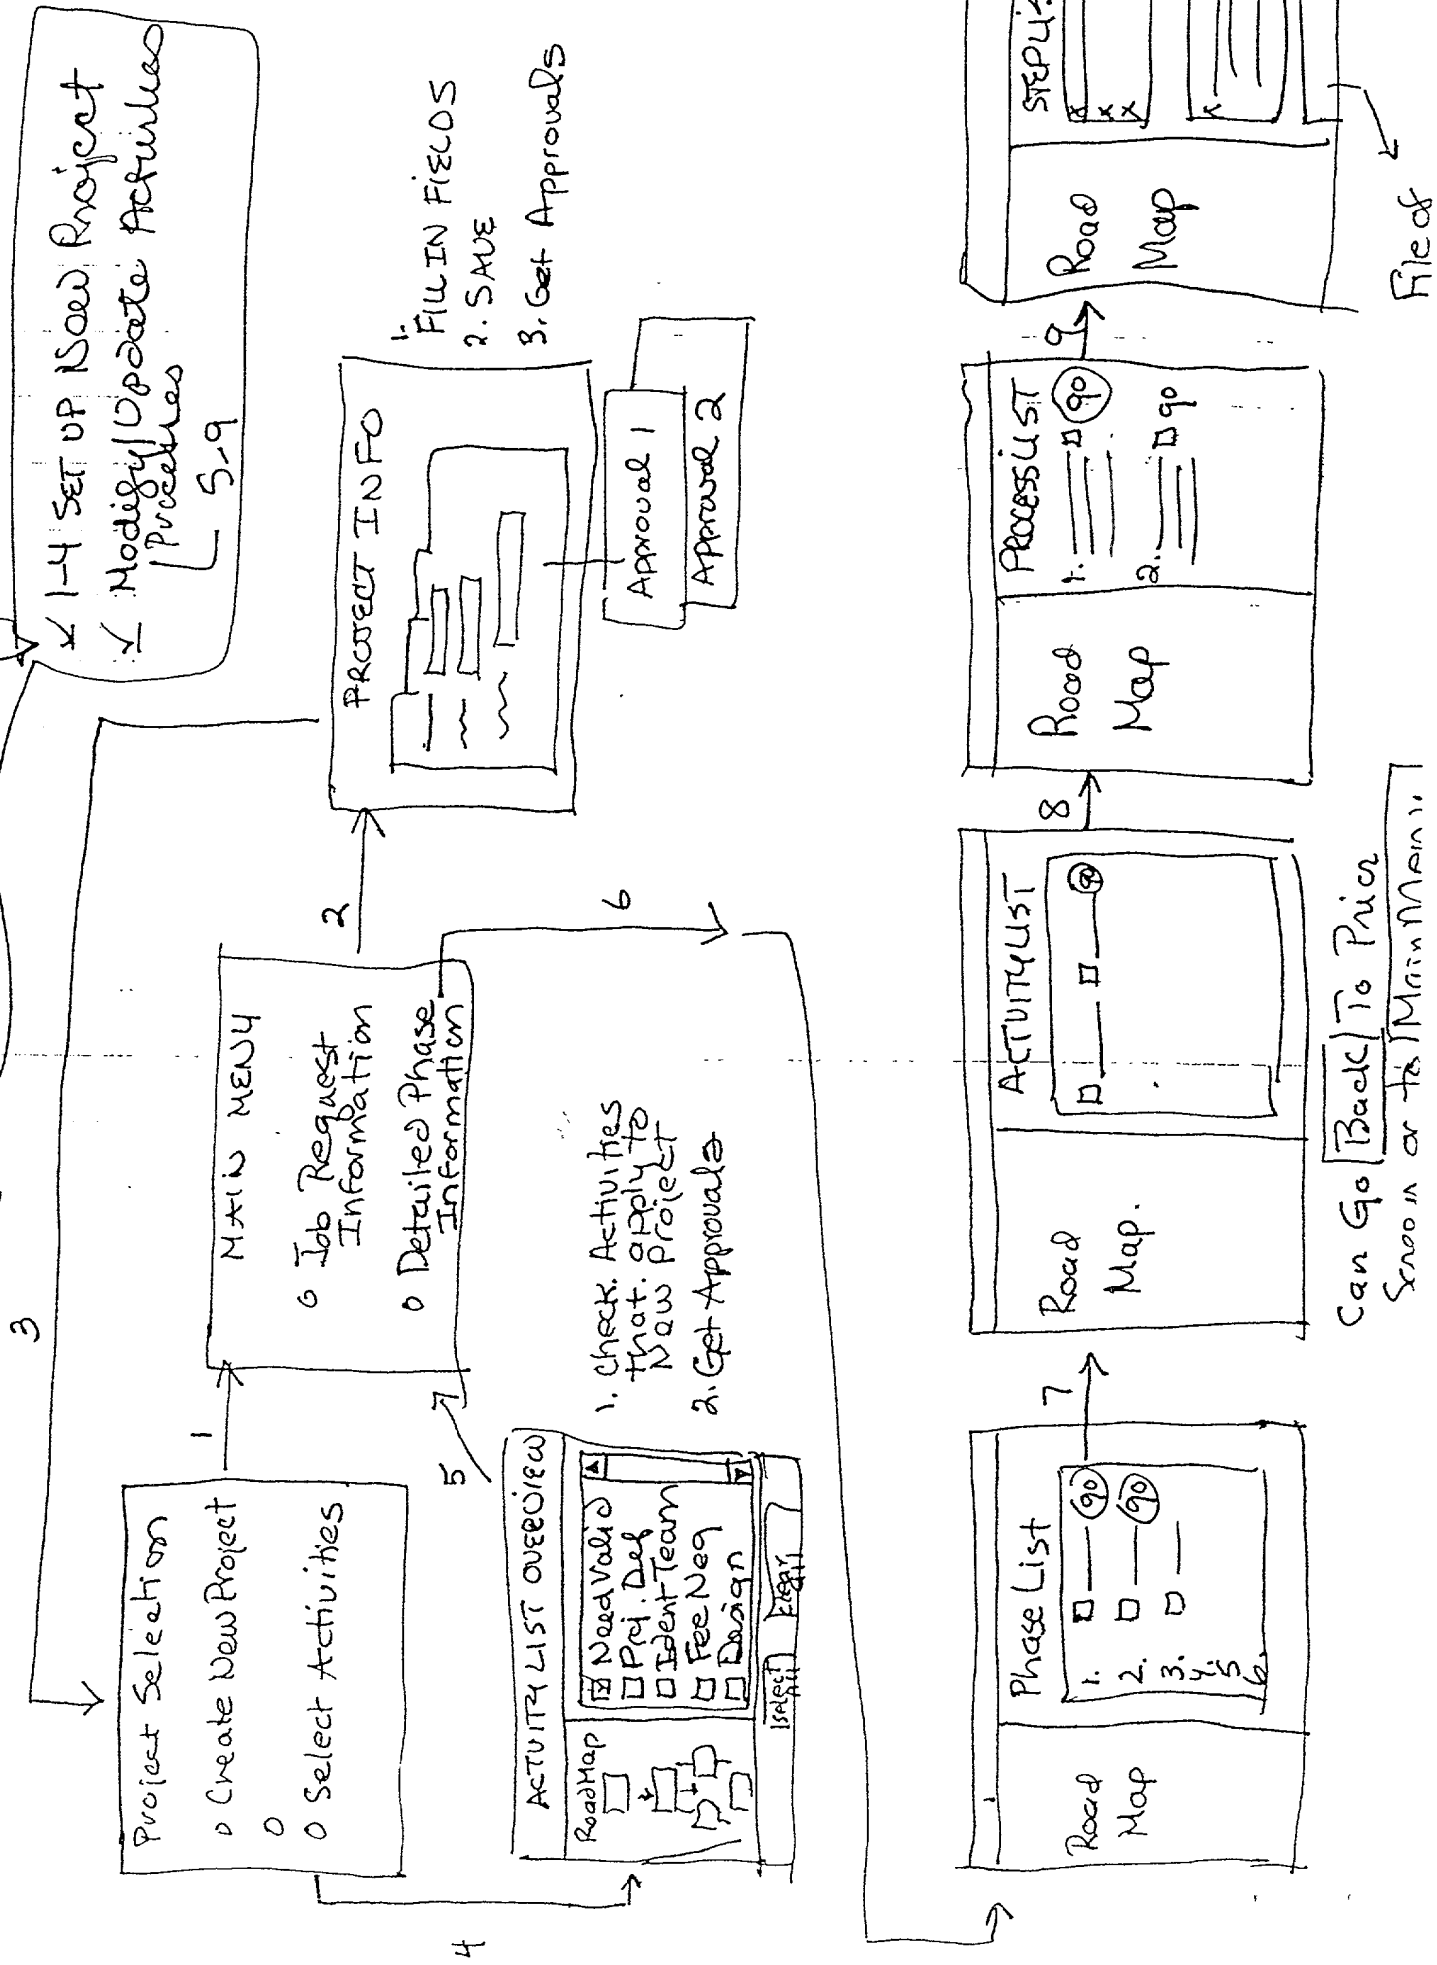 1-4 SET UP New Project
Modify/Update Activities
Procedures
5-9
3
Project Selection
o Create New Project
o
o Select Activities
1
MAIN MENU
o Job Request
Information
o Detailed Phase
Information
2
PROJECT INFO
Approval 1
Approval 2
1. FILL IN FIELDS
2. SAVE
3. Get Approvals
4
5
6
ACTIVITY LIST OVERVIEW
RoadMap
Need Valid
Proj. Def
Ident Team
Fee Neg
Design
Select All
Clear All
1. Check Activities
that apply to
New Project
2. Get Approvals
Phase List
Road
Map
1. go
2. go
3.
4.
5
6.
7
ACTIVITY LIST
Road
Map.
go
8
PROCESS LIST
Road
Map
1. go
2. go
9
Road
Map
File of
Can Go Back To Prior
Screen or to Main Menu